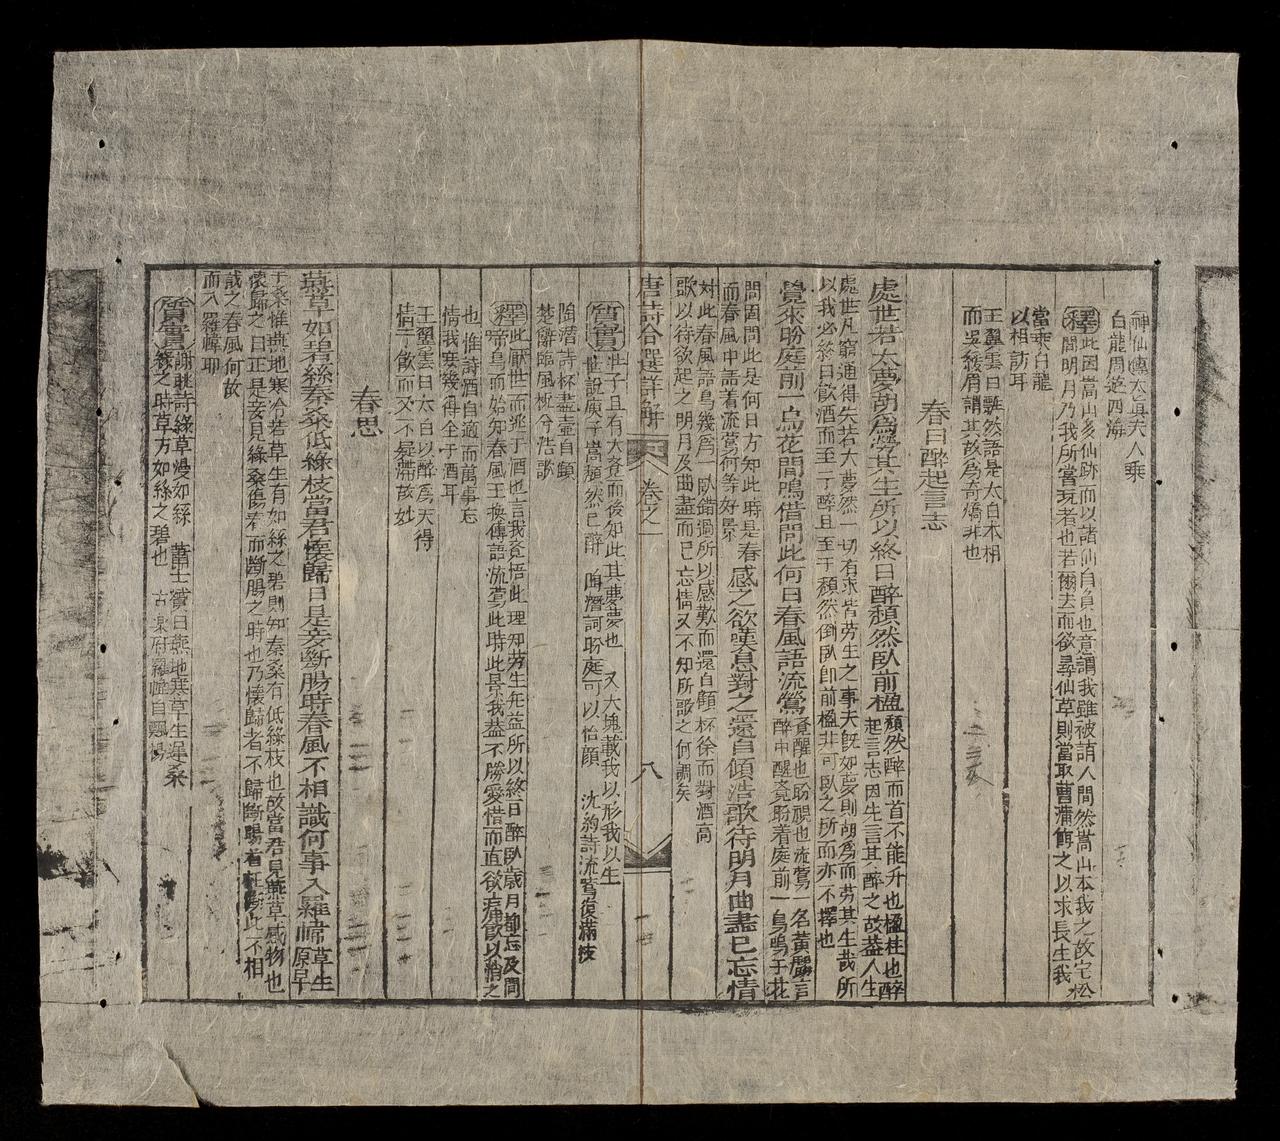 神仙傳太眞夫人乘
白龍周遊四海
釋此因嵩山多仙跡而以諸仙自負也意謂我雖被謫人間然嵩山本我之故宅松
間明月乃我所當玩者也若爾去而欲尋仙草則當取菖蒲餌之以求長生我
當乘白龍
以相訪耳
王翼雲曰飄然語是太白本相
而吳綏眉謂其故爲奇矯非也
春日醉起言志
處世若大夢胡爲勞其生所以終日醉頹然臥前楹
頹然醉而首不能升也楹柱也醉
起言志因生言其醉之故蓋人生
處世凡窮通得失若大夢然一切有求皆勞生之事夫旣如夢則胡爲而勞其生哉所
以我必終日飮酒而至于醉且至于頹然倒臥卽前楹非可臥之所而亦不擇也
覺來盼庭前一鳥花間鳴借問此何日春風語流鶯
覺醒也盼視也流鶯一名黃鸝言
醉中醒覺盼着庭前一鳥鳴于花
間因問此是何日方知此時是春
而春風中語着流鶯何等好景
感之欲嘆息對之還自傾浩歌待明月曲盡已忘情
對此春風語鳥幾爲一臥錯過所以感歎而還自傾一杯徐而對酒高
歌以待欲起之明月及曲盡而已忘情又不知所歌之何謂矣
唐詩合選詳解 卷之一 八
質實 莊子且有大覺而後知此其大夢也 又大塊載我以形我以生
世說庾子嵩頹然已醉 陶潛詞盼庭可以怡顏 沈約詩流鶯復滿枝
陶潛詩杯盡壺自傾
楚辭臨風怳兮浩歌
釋此厭世而逃于酒也言我覺悟此理知勞生無益所以終日醉臥歲月都忘及問
帝鳥而始知春風王換傳語流鶯此時此景我蓋不勝愛惜而直欲痛飮以銷之
也惟詩酒自適而萬事忘
情我妄幾得全于酒耳
王翼雲曰太白以醉爲天得
情于飮而又不凝滯故妙
春思
燕草如碧絲秦桑低綠枝當君懷歸日是妾斷腸時春風不相識何事入羅幃
草生
原早
于桑惟燕地寒冷若草生有如絲之碧則知秦桑有低綠枝也故當君見燕草感物也
懷歸之日正是妾見綠桑傷春而斷腸之時也乃懷歸者不歸斷腸者枉斷此不相
識之春風何故
而入羅幃耶
質實 謝朓詩綠草漫如絲 蕭士贇曰燕地寒草生遲桑
綠之時草方如絲之碧也 古樂府羅幃自飄揚